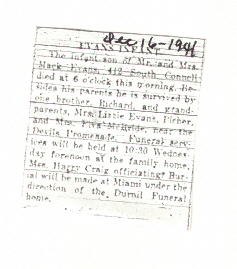 Dec 16-1941
EVANS INFANT
The infant son of Mr. and Mrs.
Mack Evans, 412 South Connell
died at 6 o'clock this morning. Be-
sides his parents he is survived by
one brother, Richard, and grand-
parents, Mrs. Lizzie Evans, Picher,
and Mrs. McBride, near the
Devils Promenade. Funeral serv-
ices will be held at 10:30 Wednes-
day forenoon at the family home.
Mrs. Harry Craig officiating. Bur-
ial will be made at Miami under the
direction of the Durnil Funeral
home.